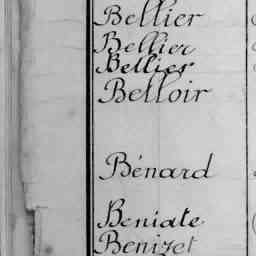 Bellier
Bellier
Bellier
Belloir
Bénard
Beniate
Benizet